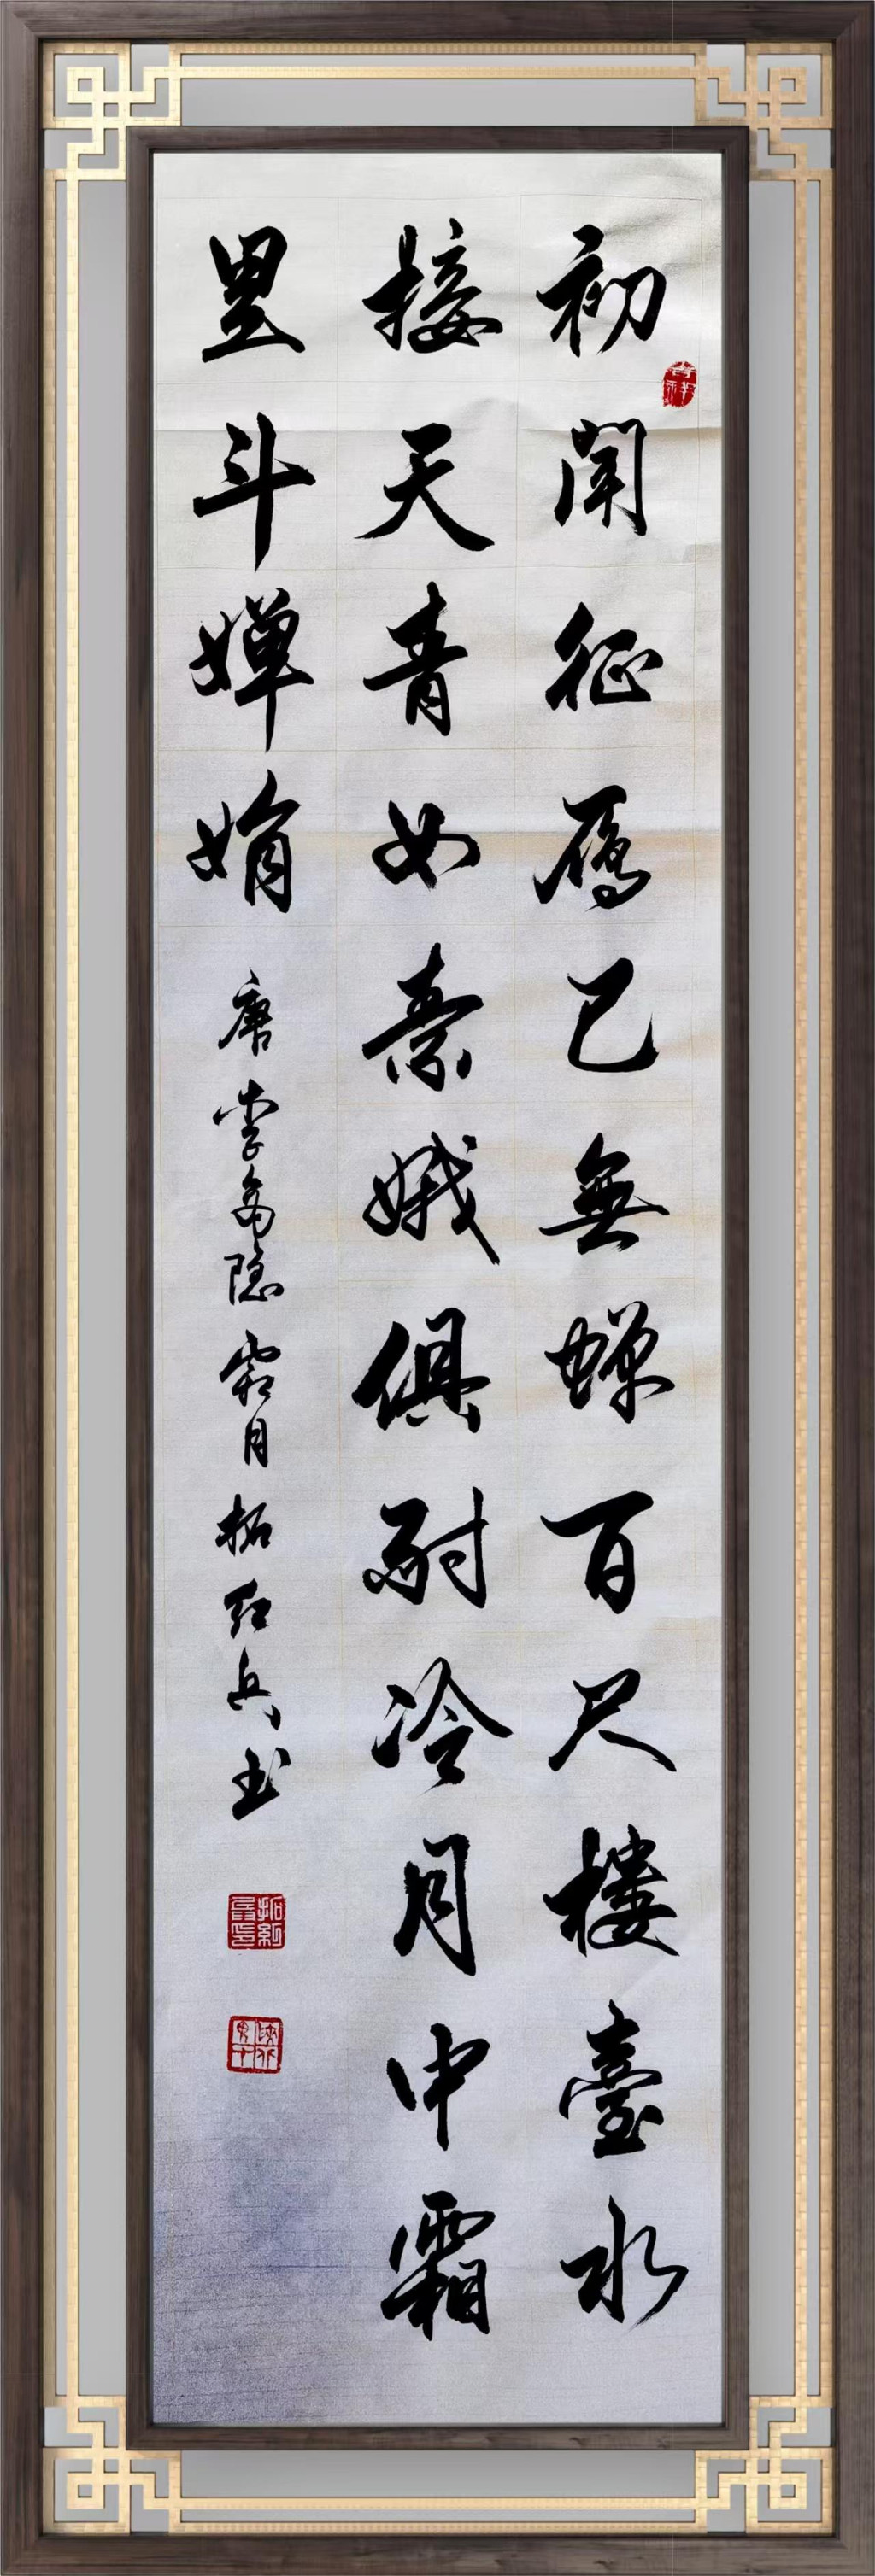 初闻征雁已無蝉百尺楼臺水
接天青女素娥俱耐冷月中霜
里斗婵娟 唐李商隐霜月拓红兵书